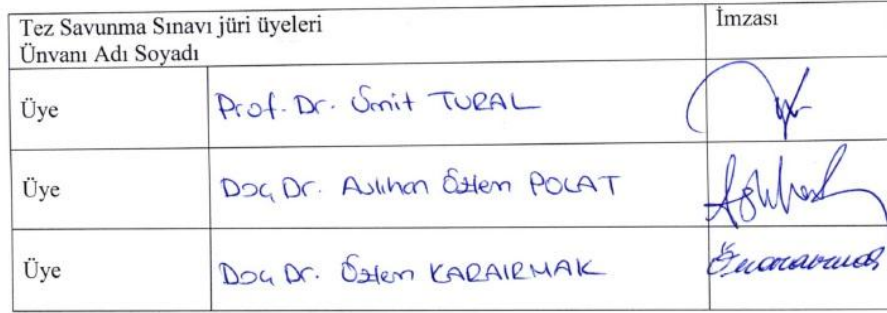 Tez Savunma Sınavı jüri üyeleri
Ünvanı Adı Soyadı
İmzası
Üye
Prof. Dr. Ümit TURAL
Üye
Doç Dr. Aslıhan Özlem POLAT
Üye
Doç Dr. Özlem KARAIRMAK